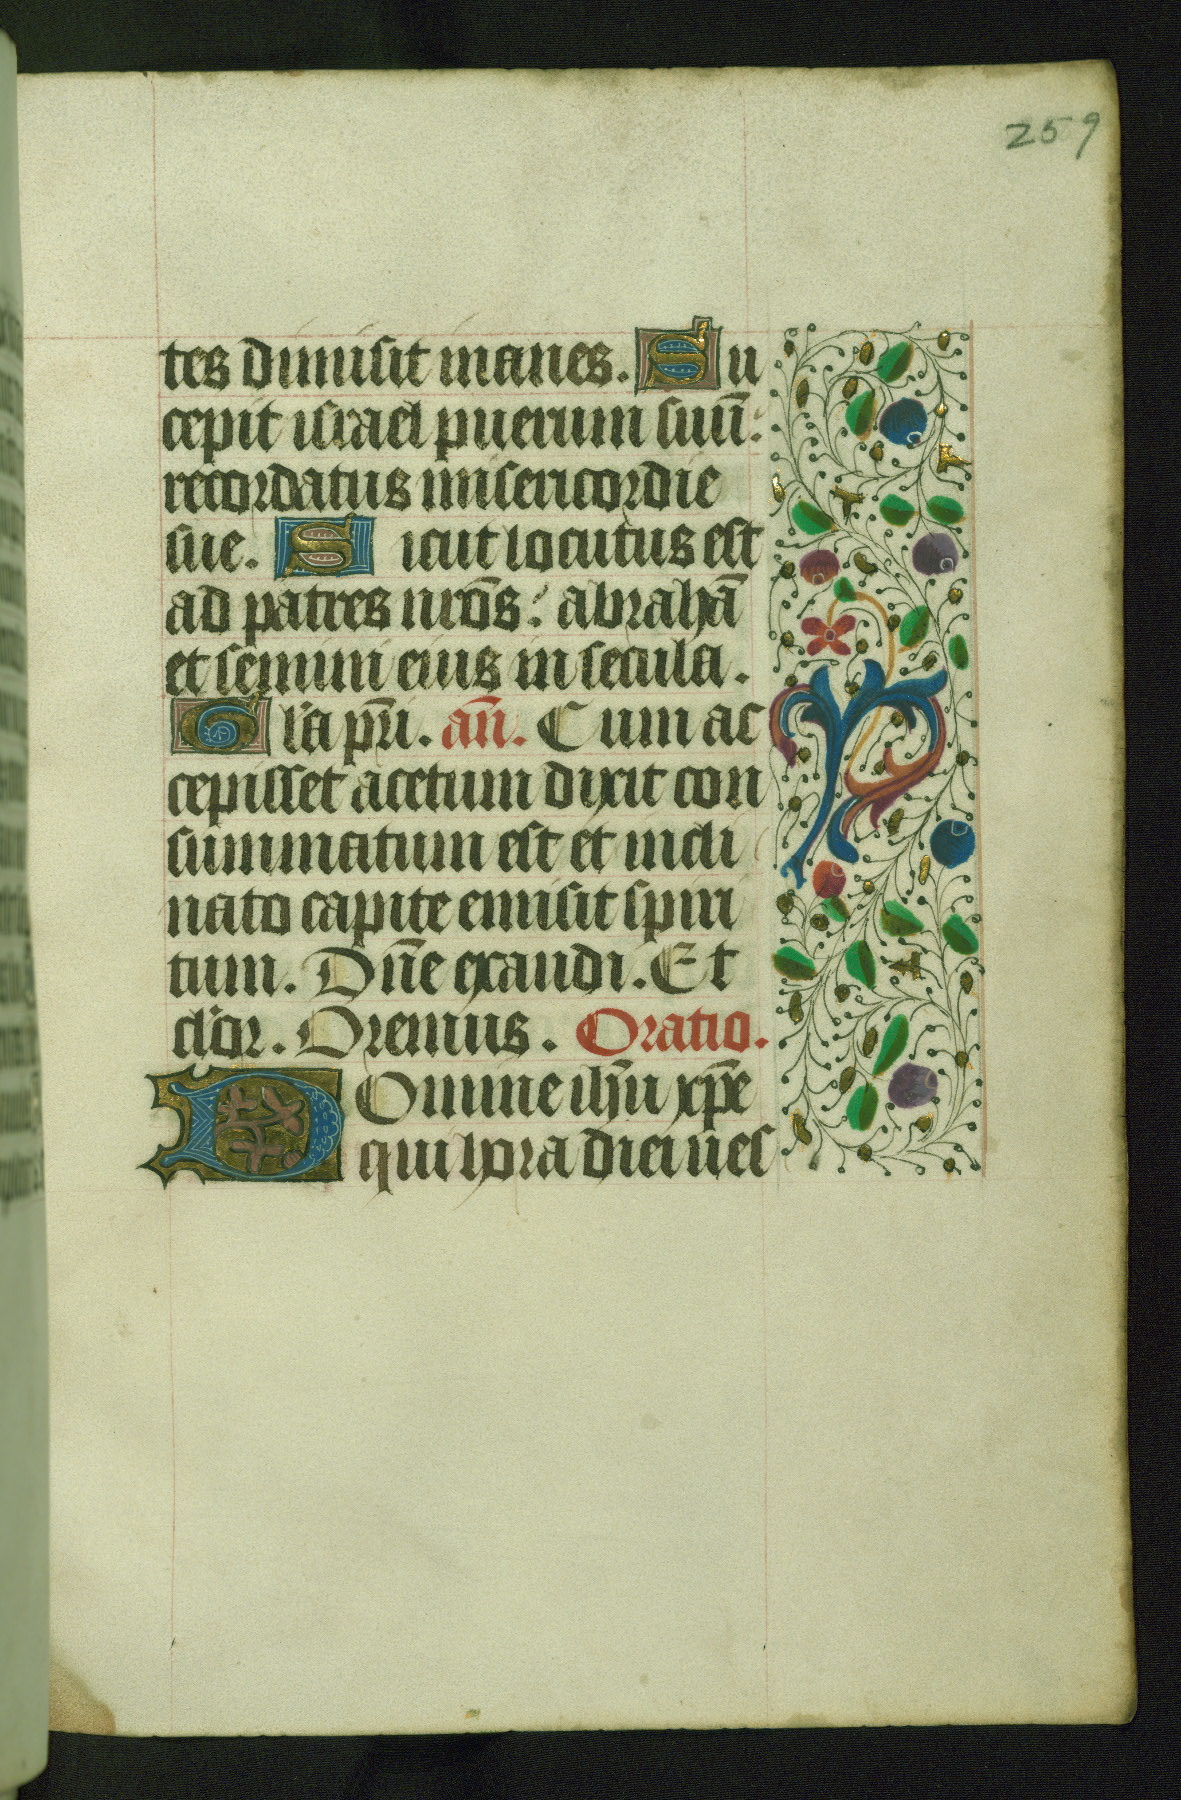 259
tes dimisit inanes. Su
cepit israel puerum suū:
recordatus misericordie
sue. Sicut locutus est
ad patres nrōs: abrahā
et semini eius in secula.
Gl'a pr̄i. an̄. Cum ac
cepisset acetum dixit con
summatum est et incli
nato capite emisit spiri
tum. Dn̄e exaudi. Et
cl'or. Oremus. Oratio.
Domine ih̄u xp̄e
qui hora diei ues